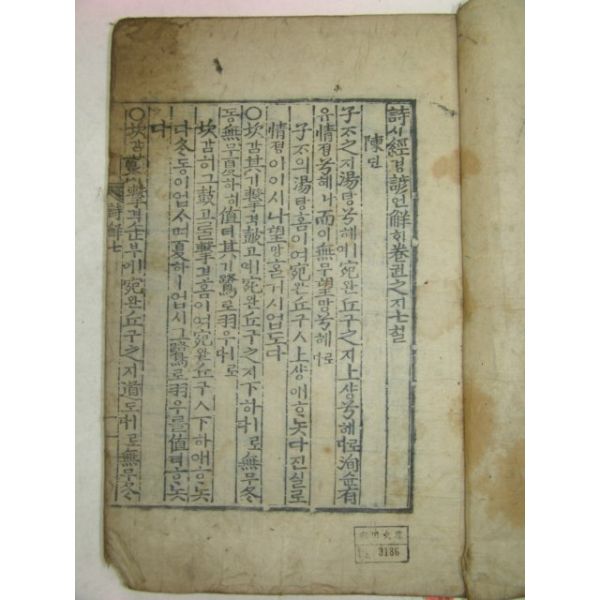 詩시經경諺언解ᄒᆡ卷권之지七칠
陳딘
子ᄌᆞ之지湯탕兮혜여宛완丘구之지上샹兮혜로다洵슌有
유情졍兮혜나而이無무望망兮혜로다
子ᄌᆞ의湯탕홈이여宛완丘구ㅅ上샹애ᄒᆞ놋다진실로
情졍이이시나望망홀거시업도다
○坎감其기擊격鼓고ㅣ여宛완丘구之지下하ㅣ로다無무冬
동無무夏하히值티其기鷺로羽우ㅣ로다
坎감히그鼓고를擊격홈이여宛완丘구ㅅ下하애ᄒᆞ놋
다冬동이업스며夏하ㅣ업시그鷺로羽우를值티ᄒᆞ놋
다
○坎감其기擊격缶부ㅣ여宛완丘구之지道도ㅣ로다無무冬
詩解七
3186